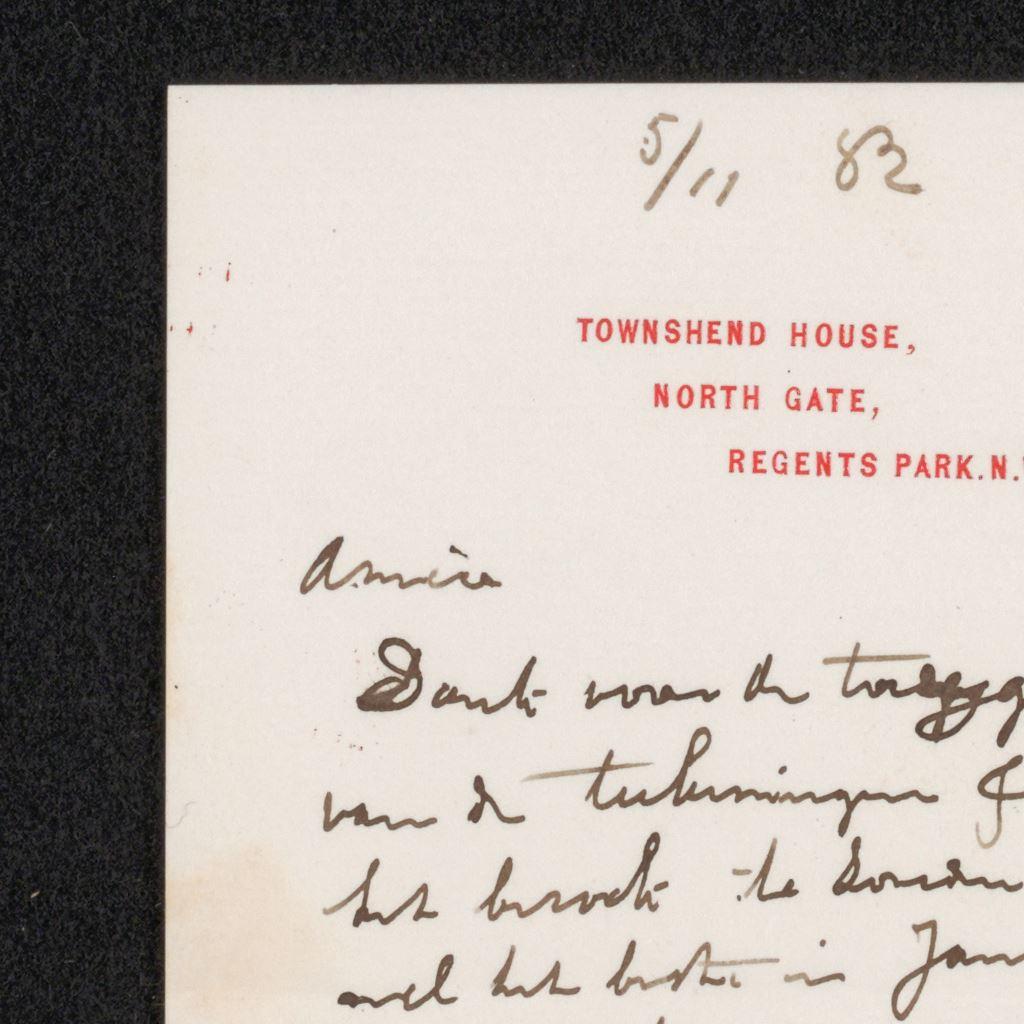 5/11 82
TOWNSHEND HOUSE,
NORTH GATE,
REGENTS PARK.N.
Amice
Dank voor de
van de teekeningen &
het bezoek te Londen
wel het beste in Jan